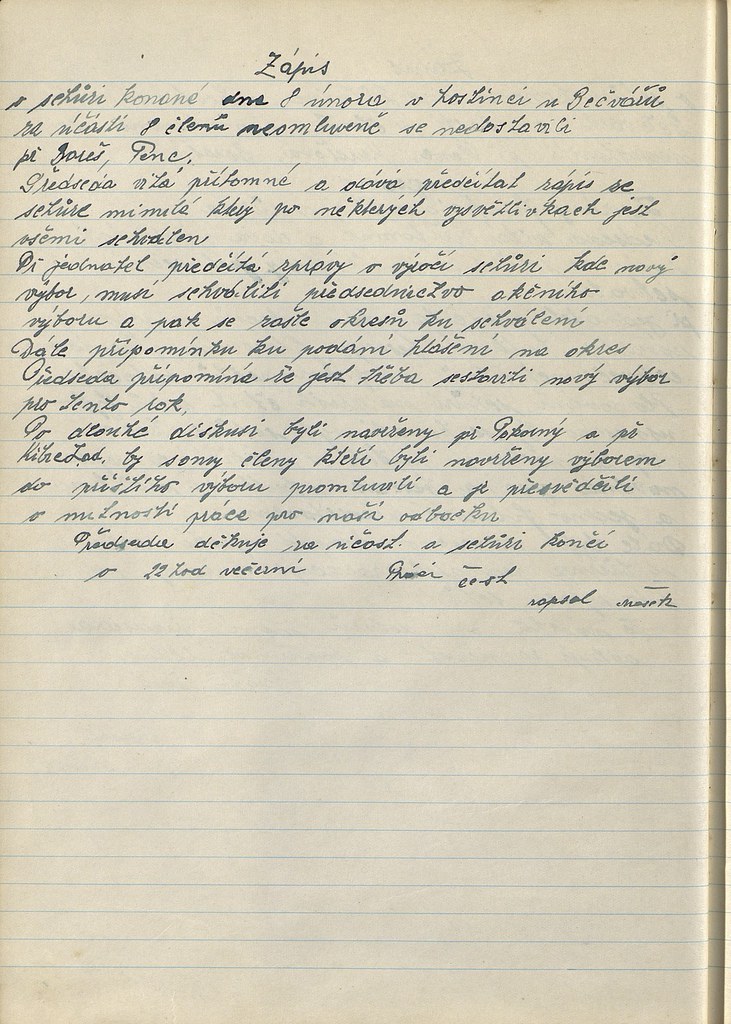 Zápis
o schůzi konané dne 8 února v hostinci u Bečvářů
za účasti 8 členů neomluveně se nedostavili
př Bareš, Penc.
Předseda vítá přítomné a dává předčítat zápis ze
schůze minulá který po některých vysvětlivkach jest
všemi schválen
Př jednatel předčítá zprávy o výročí schůzi kde nový
výbor, musí schváliti předsednictvo akčního
výboru a pak se zašle okresů ku schválení
Dále připomínku ku podání hlášení na okres
Předseda připomíná že jest třeba sestaviti nový výbor
pro tento rok.
Po dlouhé diskusi byli navrženy př Pokorný a př
by samy členy kteří byli navrženy výborem
do příštího výboru promluvili a je přesvědčili
o nutnosti práce pro naší odbočku
Předseda děkuje za účast. a schůzi končí
o 22 hod večerní Práci čest
zapsal Mašek